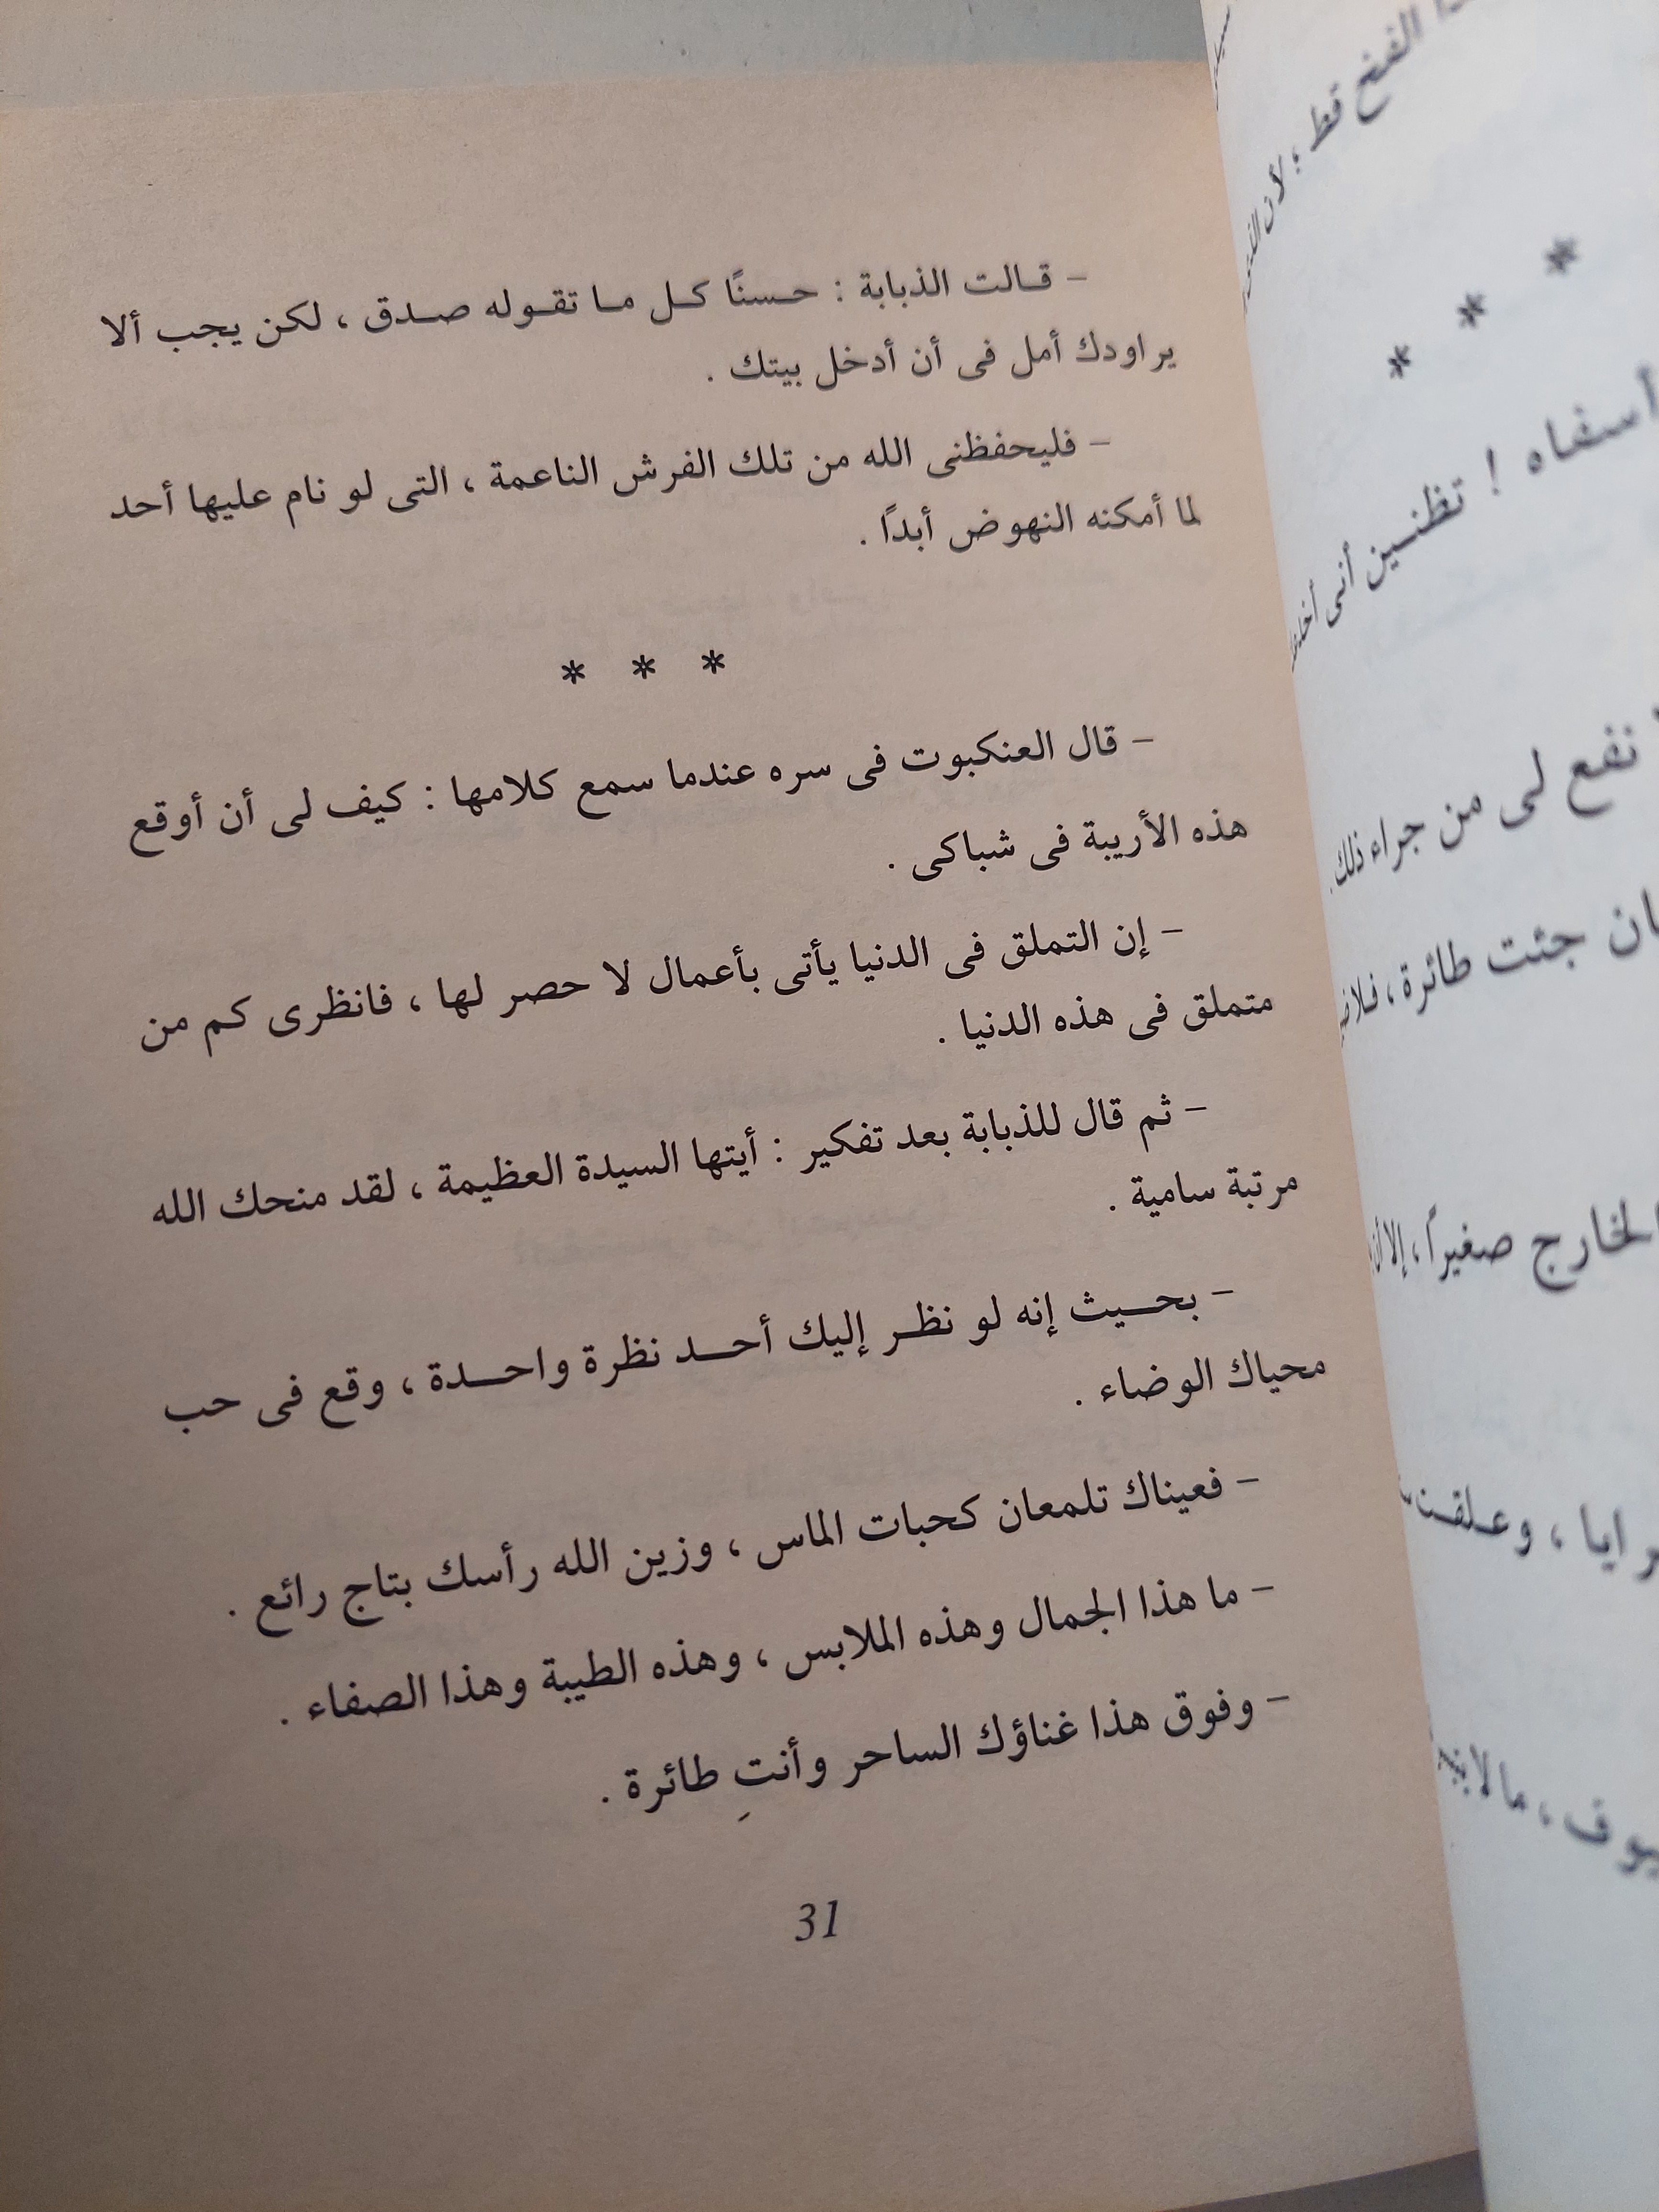 – قالت الذبابة : حسنًا كل ما تقوله صدق ، لكن يجب ألا
يراودك أمل فى أن أدخل بيتك .
– فليحفظنى الله من تلك الفرش الناعمة ، التى لو نام عليها أحد
لما أمكنه النهوض أبدًا .
* * *
– قال العنكبوت فى سره عندما سمع كلامها : كيف لى أن أوقع
هذه الأريبة فى شباكى .
– إن التملق فى الدنيا يأتى بأعمال لا حصر لها ، فانظرى كم من
متملق فى هذه الدنيا .
– ثم قال للذبابة بعد تفكير : أيتها السيدة العظيمة ، لقد منحك الله
مرتبة سامية .
– بحيث إنه لو نظر إليك أحد نظرة واحدة ، وقع فى حب
محياك الوضاء .
– فعيناك تلمعان كحبات الماس ، وزين الله رأسك بتاج رائع .
– ما هذا الجمال وهذه الملابس ، وهذه الطيبة وهذا الصفاء .
– وفوق هذا غناؤك الساحر وأنتِ طائرة .
31
الفخ قط ؛ لأن
* * *
أسفاه ! تظنين أنى
نفع لى من جراء ذلك
جئت طائرة ، فلا
الخارج صغيرًا ، إلا أن